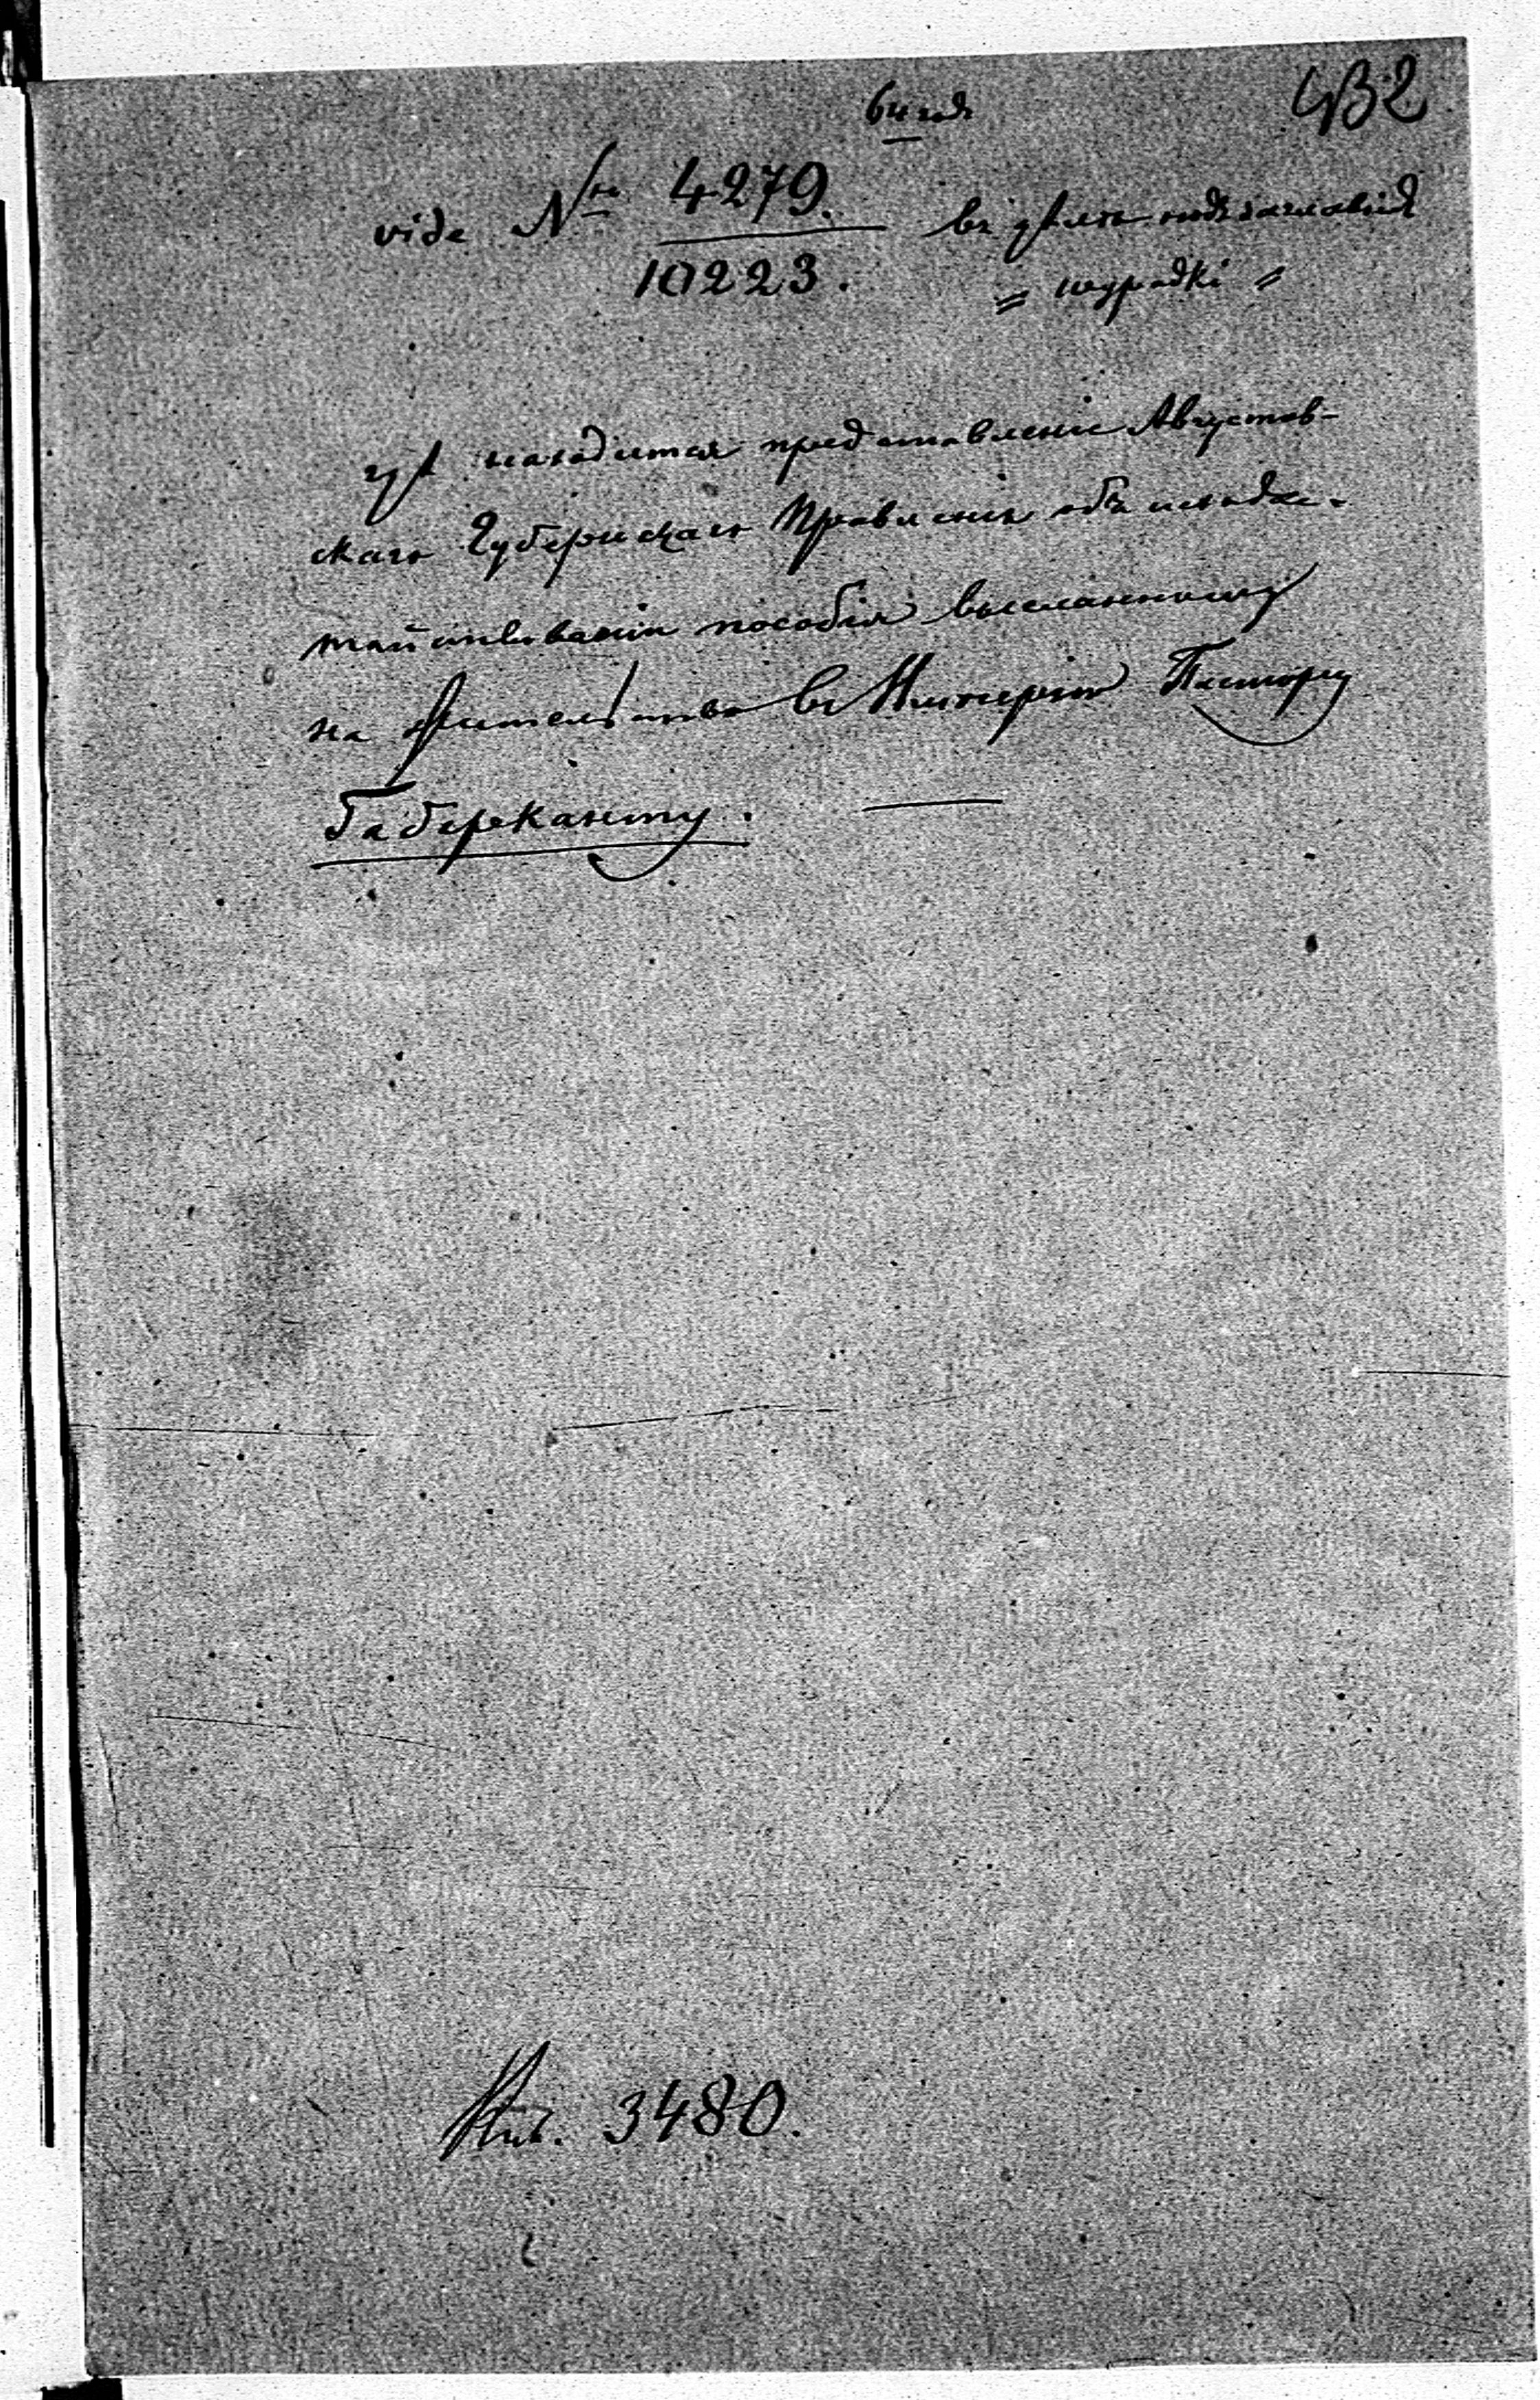 432
64 года
vide Nro 4279. въ дѣлѣ подъ заглавіемъ
10223.
гдѣ находится представленіе Августов-
скаго Губернскаго Правленія объ исхода-
тайствованіи пособія высланному
на жительство въ Имперію Пастору
Габерканту.
3480.